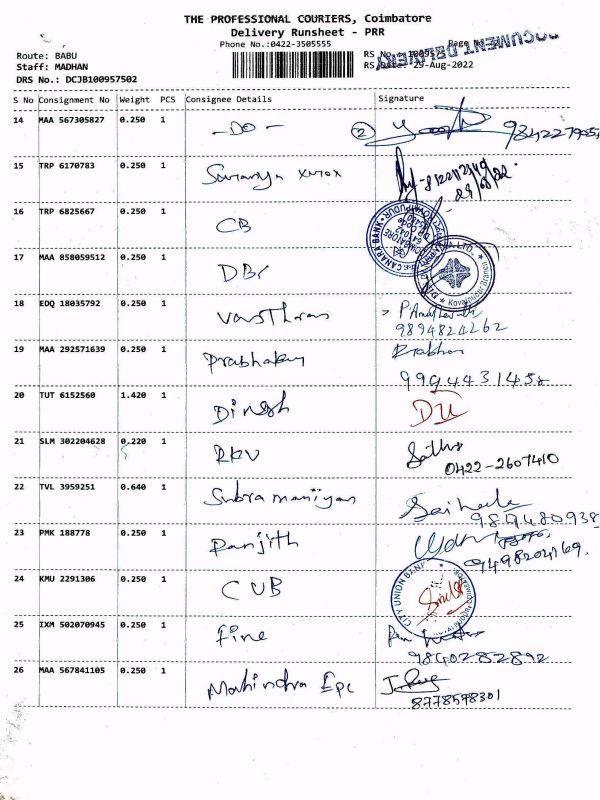 THE PROFESSIONAL COURIERS, Coimbatore
Delivery Runsheet - PRR
Phone No.:0422-3505555
DOCUMENT DELIVERY
Route: BABU
Staff: MADHAN
RS Date: 29-Aug-2022
DRS No.: DCJB100957502
S No Consignment No Weight PCS Consignee Details Signature
14 MAA 567305827 0.250 1 -DO- 2
15 TRP 6170783 0.250 1 Suranya xerox
16 TRP 6825667 0.250 1 CB
CANARA BANK
17 MAA 858059512 0.250 1 DBr
18 EDQ 18035792 0.250 1 9894824262
19 MAA 292571639 0.250 1 Prabhakar Prabhar
9994431458
20 TUT 6152560 1.420 1 Dinesh
21 SLM 302204628 0.220 1 RKV
0422-2607410
22 TVL 3959251 0.640 1 Subramaniyan
989480938
23 PMK 188778 0.250 1 Ranjith
9498204169
24 KMU 2291306 0.250 1 CUB
CITY UNION BANK
25 IXM 502070945 0.250 1 Fine
9840282892
26 MAA 567841105 0.250 1 Mahindra Epc
8778598301